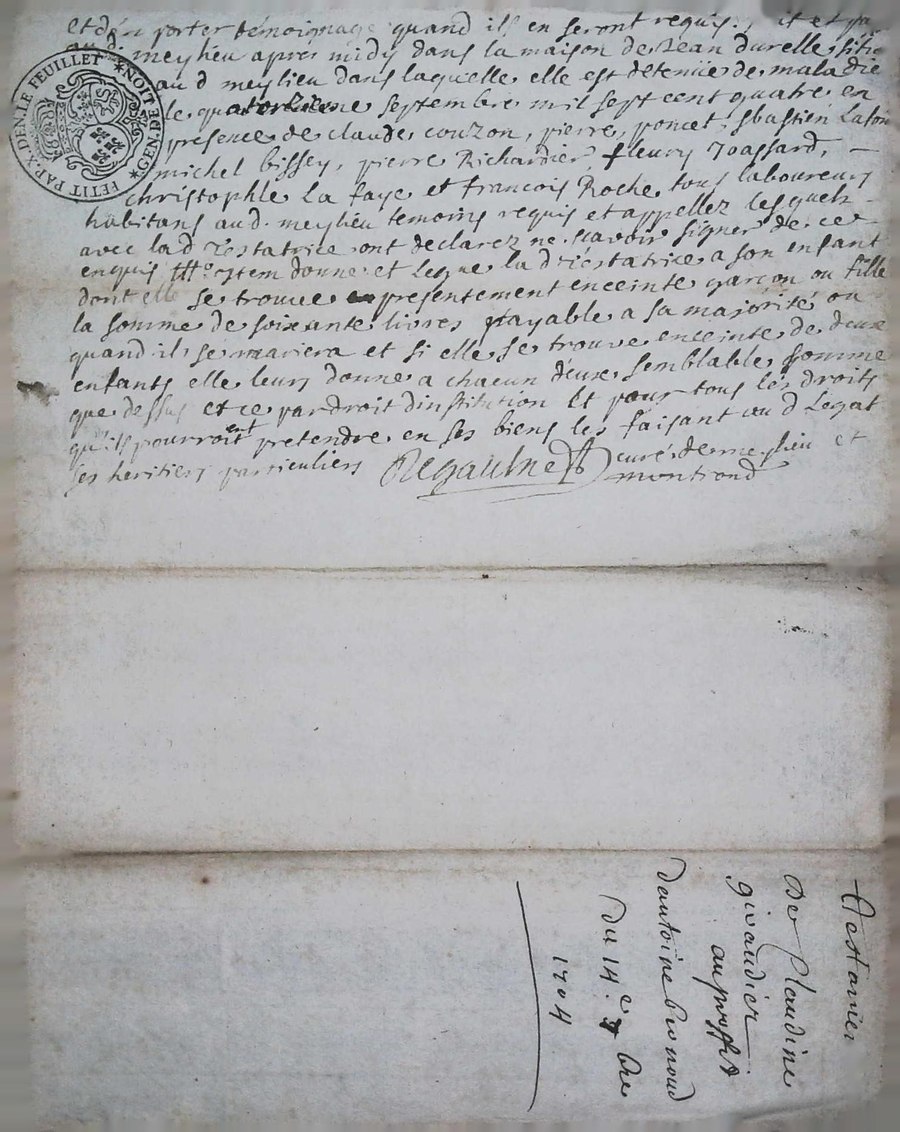 et d'en porter témoignage quand ils en seront requis. fait et
aud. meylieu aprés midy dans la maison de Jean durelle, sitüé
aud meylieu dans laquelle elle est detenüe de maladie
le quatorzieme septembre mil sept cent quatre en
presence de claude couzon, pierre poncet, sbastien Lafon
michel bissey, pierre Richardier fleury Joassard,
christophle La faye et francois Roche tous laboureurs
habitans aud. meylieu temoins requis et appellez lesquels
avec lad Testatrice ont declarez ne scavoir signer de ce
enquis ttt: ytem donne et Legue la d Testatrice a son enfant
dont elle se trouve presentement enceinte garçon ou fille
la somme de soixante livres payable a sa majorité ou
quand il se mariera et si elle se trouve enceinte de deux
enfants elle leurs donne a chacun d'eux semblable somme
que dessus et ce par droit d'institution et pour tous les droits
qu'ils pourroient pretendre en ses biens les faisant aud Legat
ses heritiers particuliers Regaulne curé de meylieu et
montrond
PETIT PAP. X. DEN. LE FEUILLET
GEN DE LION
Testamen
De Claudine
givaudier
au proffit
dantoine bernoud
Du 14.e bre
1704